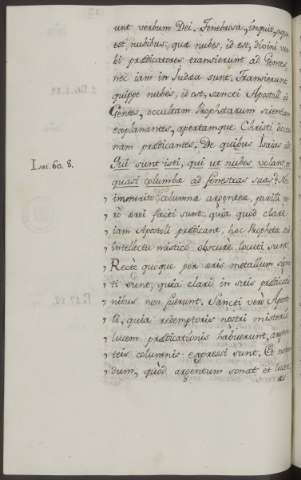 unt verbum Dei. Tenebrosa, inquit, aqua
est, nubibus, quia nubes, id est, divini ver
bi prædicatores transierunt ad Gentes
nec iam in Iudea sunt. Transierunt
quippe nubes, id est, sancti Apostoli ad
Gentes, occultam Prophetarum scientiam
explanantes, apertamque Christi doctri
nam prædicantes. De quibus Isaias ait
Isai. 60. 8.
Qui sunt isti, qui ut nubes volant, et
quasi columbæ ad fenestras suas?
immerito columnæ argenteæ, pariter
ærei facti sunt, quia quod clari
iam Apostoli prædicant, hoc Prophetæ
intellectu mistico obscurè locuti sunt.
Rectè quoque per æris metallum signa
ti sunt, quia clari in suis prædicatio
nibus non fuerunt. Sancti vero Aposto
li, quia redemptoris nostri misterii
lucem prædicationis habuerunt, argen
teis columnis expressi sunt. Et
dum, quòd argentum sonat et lucet